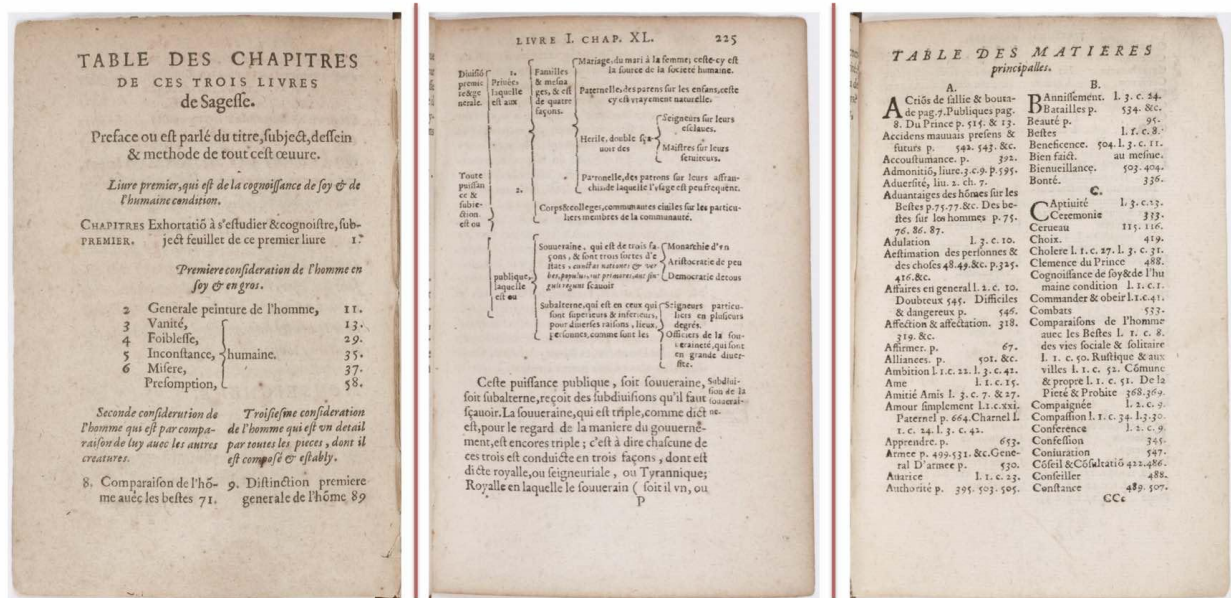 TABLE DES CHAPITRES
DE CES TROIS LIVRES
de Sageſſe.
Preface ou eſt parlé du titre, ſubject, deſſein
& methode de tout ceſt œuure.
Liure premier, qui eſt de la cognoiſſance de ſoy & de
l'humaine condition.
CHAPITRES Exhortatiõ à s'eſtudier &cognoiſtre, ſub-
PREMIER. ject feuillet de ce premier liure 1.
Premiere conſideration de l'homme en
ſoy & en gros.
2 Generale peinture de l'homme, 11.
3 Vanité, 13.
4 Foibleſſe, 29.
5 Inconſtance, humaine. 35.
6 Miſere, 37.
Preſomption, 58.
Seconde conſideration de
l'homme qui eſt par compa-
raiſon de luy auec les autres
creatures.
Troiſieſme conſideration
de l'homme qui eſt vn detail
par toutes les pieces, dont il
eſt compoſé & eſtably.
8. Comparaiſon de l'hõ-
me auec les beſtes 71.
9. Diſtinction premiere
generale de l'hõme 89
LIVRE I. CHAP. XL. 225
Toute
puiſſan
ce &
ſubie-
ction
eſt ou
Diuiſiõ
premie
re&ge
nerale.
1.
Priuée,
laquelle
eſt aux
Familles
& meſna
ges, & eſt
de quatre
façons.
Mariage, du mari à la femme; ceſte-cy eſt
la ſource de la ſocieté humaine.
Paternelle, des parens ſur les enfans, ceſte
cy eſt vrayement naturelle.
Herile, double ſça-
uoir des
Seigneurs ſur leurs
eſclaues.
Maiſtres ſur leurs
ſeruiteurs.
Patronelle, des patrons ſur leurs affran-
chis de laquelle l'vſage eſt peu frequent.
2.
Corps&colleges, communautes ciuiles ſur les particu-
liers membres de la communauté.
publique,
laquelle
eſt ou
Souueraine, qui eſt de trois fa-
çons, & ſont trois ſortes d'e
ſtats, cunctas nationes & vr
bes, populus, aut primores, aut ſin
guli regunt ſcauoir
Monarchie d'vn
Ariſtocratie de peu
Democratie de tous
Subalterne, qui eſt en ceux qui
ſont ſuperieurs & inferieurs,
pour diuerſes raiſons, lieux,
perſonnes, comme ſont les
Seigneurs particu-
liers en pluſieurs
degrés.
Officiers de la ſou-
ueraineté, qui ſont
en grande diuer-
ſité.
Ceſte puiſſance publique, ſoit ſouueraine,
ſoit ſubalterne, reçoit des ſubdiuiſions qu'il faut
ſçauoir. La ſouueraine, qui eſt triple, comme dict
eſt, pour le regard de la maniere du gouuerné-
ment, eſt encores triple; c'eſt à dire chaſcune de
ces trois eſt conduicte en trois façons, dont eſt
dicte royalle, ou ſeigneuriale, ou Tyrannique;
Royalle en laquelle le ſouuerain ( ſoit il vn, ou
Subdiui-
ſion de la
ſouuerai-
ne.
P
TABLE DES MATIERES
principalles.
A.
ACtiõs de ſallie & bouta-
de pag.7. Publiques pag.
8. Du Prince p. 515. & 13.
Accidens mauuais preſens &
futurs p. 542. 543. &c.
Accouſtumance. p. 392.
Admonitiõ, liure.3.c.9. p 595.
Aduerſité, liu. 2. ch. 7.
Aduantaiges des hõmes ſur les
Beſtes p.75.77.&c. Des be-
ſtes ſur les hommes p. 75.
76. 86. 87.
Adulation l. 3. c. 10.
Aeſtimation des perſonnes &
des choſes 48.49.&c. p.325.
416.&c.
Affaires en general l. 2. c. 10.
Doubteux 545. Difficiles
& dangereux p. 546.
Affection & affectation. 318.
319. &c.
Affirmer. p. 67.
Alliances. p. 501. &c.
Ambition l. 1. c. 22. l. 3. c. 42.
Ame l. 1. c. 15.
Amitié Amis l. 3. c. 7. & 27.
Amour ſimplement l.1.c.xxi.
Paternel p. 664. Charnel l.
1. c. 24. l. 3. c. 42.
Apprendre. p. 653.
Armee p. 499.531. &c. Gene-
ral D'armee p. 530.
Auarice l. 1. c. 23.
Authorité p. 395. 503. 505.
B.
BAnniſſement. l. 3. c. 24.
Batailles p. 534. &c.
Beauté p. 95.
Beſtes l. 1. c. 8.
Beneficence. 504. l. 3. c. 11.
Bien faict. au meſme.
Bienueillance. 503. 404.
Bonté. 336.
C.
CAptiuité l. 3. c.23.
Ceremonie 333.
Cerueau 115. 116.
Choix. 419.
Cholere l. 1. c. 27. l. 3. c. 31.
Clemence du Prince 488.
Cognoiſſance de ſoy&de l'hu
maine condition l. 1. c. 1.
Commander & obeir l.1.c.41.
Combats 533.
Comparaiſon de l'homme
auec les Beſtes l. 1. c. 8.
des vies ſociale & ſolitaire
l. 1. c. 50. Ruſtique & aux
villes l. 1. c. 52. Cõmune
& propre l. 1. c. 51. De la
Pieté & Probite 368.369.
Compaignée l. 2. c. 9.
Compaſſion l. 1. c. 34. l.3.30.
Conference l. 2. c. 9.
Confeſſion 345.
Coniuration 547.
Cõſeil & Cõſultatiõ 422.486.
Conſeiller 488.
Conſtance 489. 507.
CCc